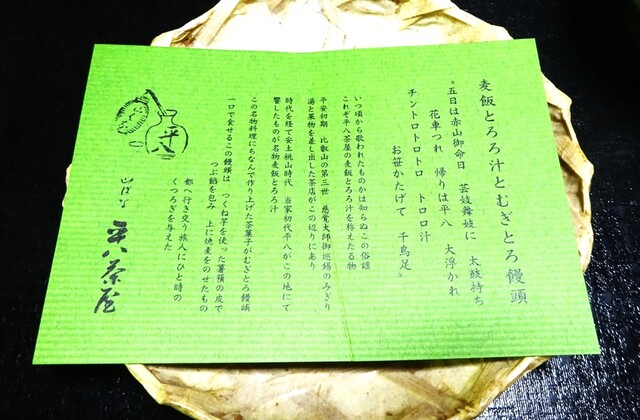 麦飯とろろ汁とむぎとろ饅頭
"五日は赤山御命日 芸妓舞妓に 太鼓持ち
花車つれ 帰りは平八 大浮かれ
チントロトロトロ トロロ汁
お笹かたげて 千鳥足"
いつ頃から歌われたものかは知らぬこの俗謡
これぞ平八茶屋の麦飯とろろ汁を称えたる物
平安初期 比叡山の第三世 慈覚大師御巡錫のみぎり
湯と菓物を差し出した茶店がこの辺りにあり
時代を経て安土桃山時代 当家初代平八がこの地にて
饗したものが名物麦飯とろろ汁
この名物料理にちなんで作り上げた茶菓子がむぎとろ饅頭
一口で食せるこの饅頭は つくね芋を使った薯蕷の皮で
つぶ餡を包み 上に焼麦をのせたもの
都へ行き交う旅人にひと時の
くつろぎを与えた
山ばな 平八茶屋
平八